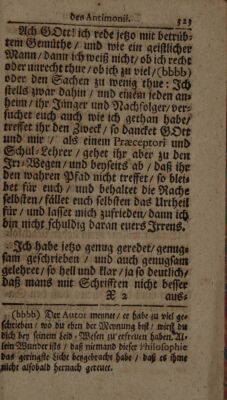 des Antimonii. 323
Ach GOtt! ich rede jetzo mit betrüb-
tem Gemüthe / und wie ein geistlicher
Mann / dann ich weiß nicht / ob ich recht
oder unrecht thue / ob ich zu viel / (bbbb)
oder den Sachen zu wenig thue: Ich
stells zwar dahin / und einem jeden an-
heim / ihr Jünger und Nachfolger / ver-
suchet euch auch wie ich gethan habe /
treffet ihr den Zweck / so dancket GOtt
und mir / als einem Præceptori und
Schul-Lehrer / gehet ihr aber zu den
Irr-Wegen / und beyseits ab / daß ihr
den wahren Pfad nicht treffet / so blei-
bet für euch / und behaltet die Rache
selbsten / fället euch selbsten das Urtheil
für / und lasset mich zufrieden / dann ich
bin nicht schuldig daran euers Irrens.
Ich habe jetzo genug geredet / genug-
sam geschrieben / und auch genugsam
gelehret / so hell und klar / ja so deutlich /
daß mans mit Schrifften nicht besser
X 2 aus-
(bbbb) Der Autor meynet / er habe zu viel ge-
schrieben / wo du eben der Meynung bist / wirst du
dich bey seinem Leid-Wesen zu erfreuen haben. Al-
lein Wunder ists / daß niemand dieser Philosophie
das geringste Licht beygebracht habe / daß es ihme
nicht alsobald hernach gereuet.